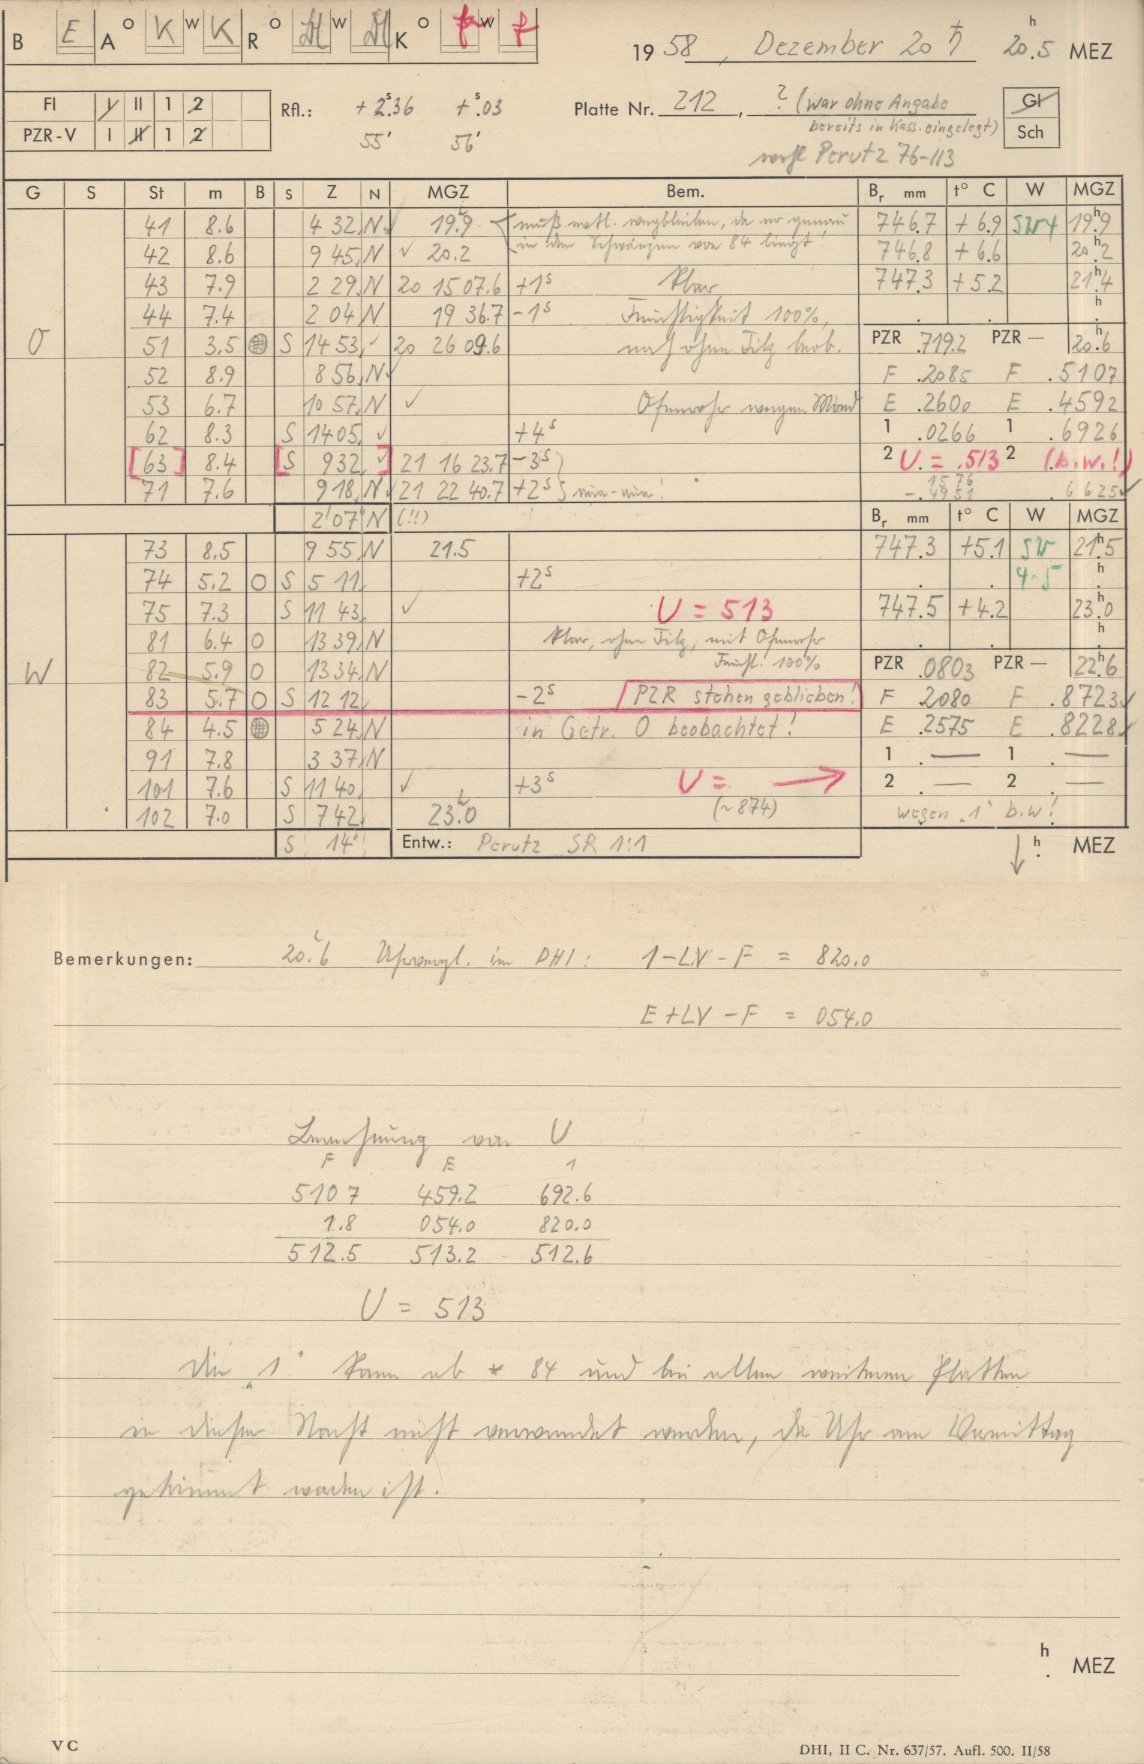 B E A O K W K R O W K O W f
1958, Dezember 20 ♄ 20.5 h MEZ
FI I II 1 2
PZR-V I II 1 2
Rfl.: + 2.36 s + .03 s
55' 56'
Platte Nr. 212, ? (war ohne Angabe
bereits in Kass. eingelegt)
wohl Perutz 76-113
Gl
Sch
G S St m B S Z N MGZ Bem. Br mm t° C W MGZ
41 8.6 4 32 N 19.9 muß evtl. wegbleiben, da er genau 746.7 +6.9 SW4 19.9
42 8.6 9 45 N ✓ 20.2 in den Schwänzen von 84 liegt! 746.8 +6.6 20.2
43 7.9 2 29 N 20 15 07.6 +1s klar 747.3 +5.2 21.4
44 7.4 2 04 N 19 36.7 -1s Feuchtigkeit 100%,
O 51 3.5 S 14 53 ✓ 20 26 09.6 noch ohne Filz beob. PZR .7192 PZR — 20.6
52 8.9 8 56 N F .2085 F .5107
53 6.7 10 57 N ✓ Ofenrohr wegen Mond E .2600 E .4592
62 8.3 S 14 05 ✓ +4s 1 .0266 1 .6926
[63] 8.4 [S 9 32 ✓] 21 16 23.7 -3s 2 U = .513 2 (b.w.!)
71 7.6 9 18 N 21 22 40.7 +2s 1576 4951 .6625 ✓
2'07" N (!!) Br mm t° C W MGZ
73 8.5 9 55 N 21.5 747.3 +5.1 SW 21.5
74 5.2 O S 5 11 +2s 4-5
75 7.3 S 11 43 ✓ U = 513 747.5 +4.2 23.0
81 6.4 O 13 39 N klar, ohne Filz, mit Ofenrohr
W 82 5.9 O 13 34 N Feucht. 100% PZR .0803 PZR — 22.6
83 5.7 O S 12 12 -2s PZR stehen geblieben! F .2080 F .8723 ✓
84 4.5 5 24 N in Getr. O beobachtet! E .2575 E .8228 ✓
91 7.8 3 37 N 1 . — 1 . —
101 7.6 S 11 40 ✓ +3s U = → 2 . — 2 . —
102 7.0 S 7 42 23.0 (~874) wegen „1" b.w!
S 14" Entw.: Perutz SR 1:1 h MEZ
Bemerkungen: 20.6 Uhrvergl. im DHI: 1-LV-F = 820.0
E+LV-F = 054.0
Berechnung von U
F E 1
5107 459.2 692.6
1.8 054.0 820.0
512.5 513.2 512.6
U = 513
Die „1" kann ab * 84 und bei allen weiteren Platten
in dieser Nacht nicht verwendet werden, da Uhr am Vormittag
gestimmt worden ist.
h MEZ
VC
DHI, II C. Nr. 637/57. Aufl. 500. II/58